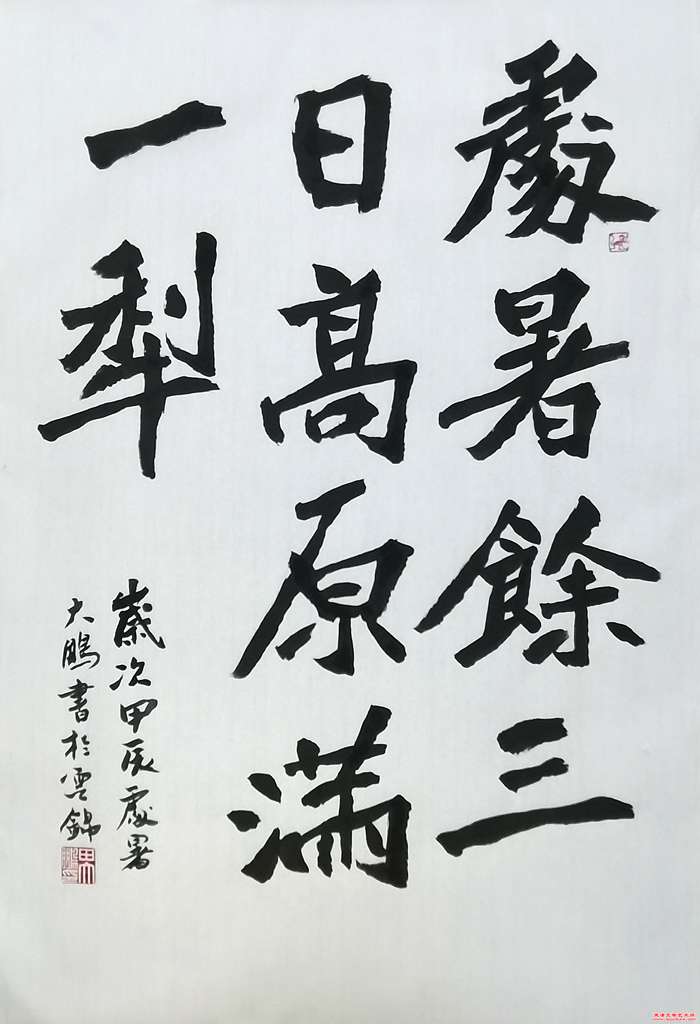 處暑餘三
日高原滿
一犁
歲次甲辰處暑
大鵬書於雲錦